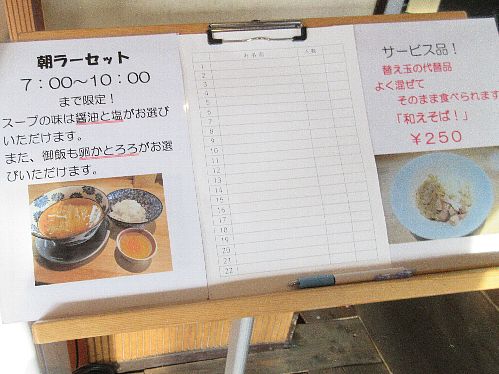 朝ラーセット
7:00〜10:00
まで限定!
スープの味は醤油と塩がお選び
いただけます。
また、御飯も卵かとろろがお選
びいただけます。
お名前 人数
1
2
3
4
5
6
7
8
9
10
11
12
13
14
15
16
17
18
19
20
21
22
サービス品!
替え玉の代替品
よく混ぜて
そのまま食べられます
「和えそば!」
¥250